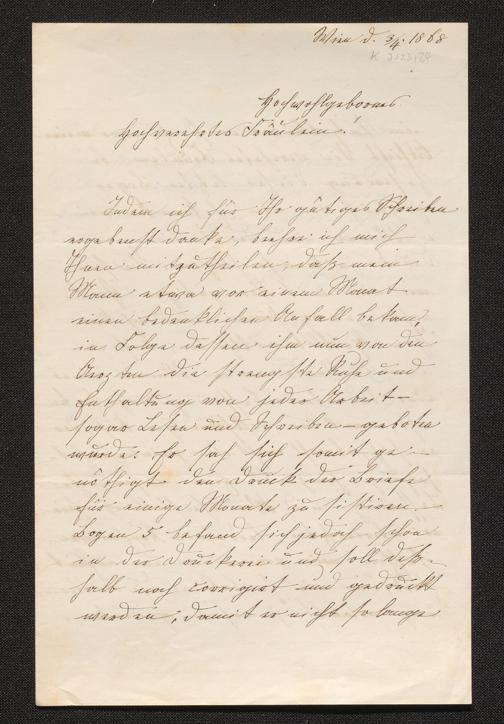 Wien d. 3/4 1868
Hochwohlgebornes
Hochverehrtes Fräulein!
Indem ich für Ihr gütiges Schreiben
ergebenst danke, beehre ich mich
Ihnen mitzutheilen, daß mein
Mann etwa vor einem Monat
einen bedenklichen Anfall bekam,
in Folge dessen ihm nun von den
Aerzten die strengste Ruhe und
Enthaltung von jeder Arbeit –
sogar Lesen und Schreiben – geboten
wurde. Er sah sich somit ge-
nöthigt den Druck der Briefe
für einige Monate zu sistiren.
Bogen 5 befand sich jedoch schon
in der Druckerei und soll deß-
halb noch corrigirt und gedruckt
werden, damit er nicht so lange